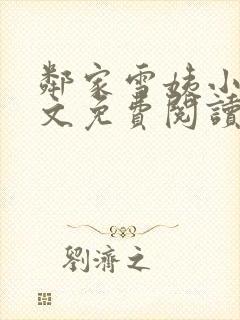 鄰家雪姨小
文免費閱讀
劉濟之